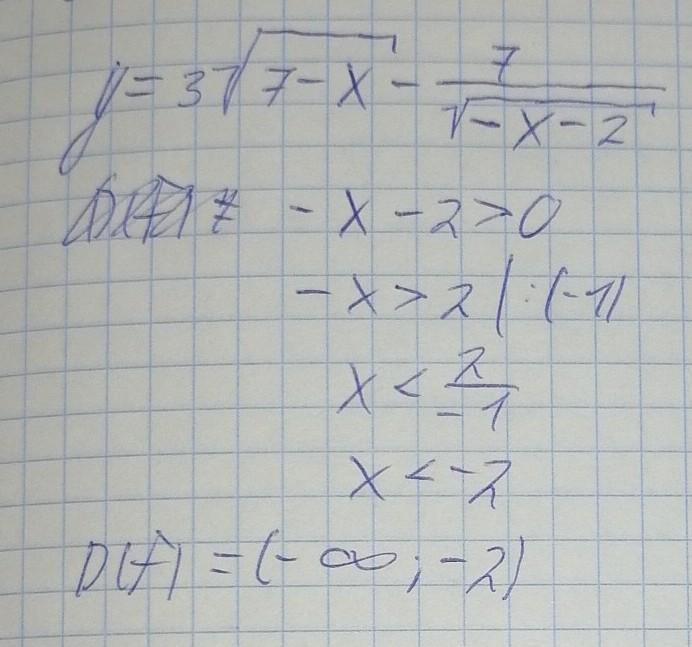 y = 3√(7-x) - 7/√(-x-2)
-x-2>0
-x>2 |:(-1)
x < 2/-1
x < -2
D(f) = (-∞; -2)